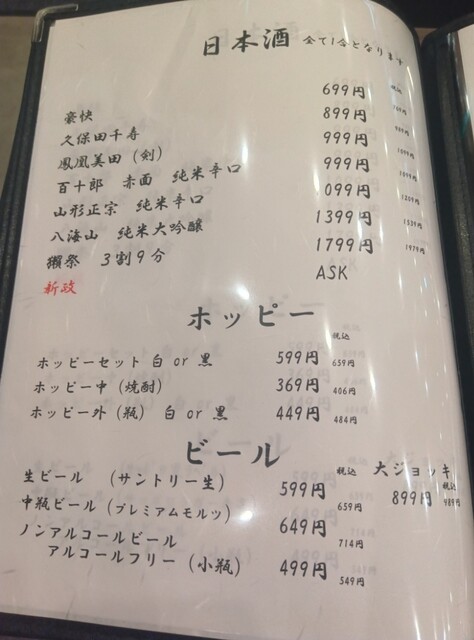 日本酒 全て1合となります
税込
豪快 699円 769円
久保田千寿 899円 989円
鳳凰美田（剣） 999円 1099円
百十郎 赤面 純米辛口 999円 1099円
山形正宗 純米辛口 099円 1209円
八海山 純米大吟醸 1399円 1539円
獺祭 3割9分 1799円 1979円
新政 ASK
ホッピー
税込
ホッピーセット 白 or 黒 599円 659円
ホッピー中（焼酎） 369円 406円
ホッピー外（瓶） 白 or 黒 449円 484円
ビール
税込 大ジョッキ 税込
生ビール （サントリー生） 599円 659円 899円 989円
中瓶ビール（プレミアムモルツ） 649円 714円
ノンアルコールビール
アルコールフリー（小瓶） 499円 549円